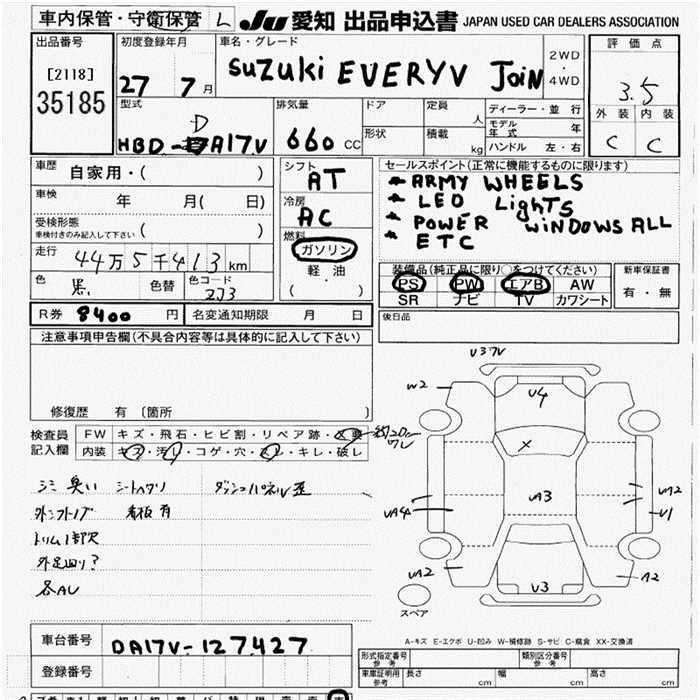 車内保管・守衛保管 L JU 愛知 出品申込書 JAPAN USED CAR DEALERS ASSOCIATION
出品番号
[2118]
35185
初度登録年月
27 7月
車名・グレード
SUZUKI EVERYV JOIN
2WD
・
4WD
評価点
3.5
外装 内装
C C
型式
HBD-DA17V
排気量
660 CC
ドア
形状
定員
人
積載
kg
ディーラー・並行
モデル年式 年
ハンドル 左・右
車歴
自家用・( )
車検
年 月( 日)
受検形態
車検付きのみ記入して下さい ( )
走行
44万5千413km
色
黒
色替
色コード
ZJ3
シフト
AT
冷房
AC
燃料
ガソリン
軽油
( ・ )
セールスポイント(正常に機能するものに限ります)
ARMY WHEELS
LED LighTS
POWER WiNDOWS ALL
ETC
装備品(純正品に限り○をつけてください)
PS PW エアB AW
SR ナビ TV カワシート
新車保証書
有・無
R券 8400 円
名変通知期限 月 日
後日品
注意事項申告欄(不具合内容等は具体的に記入して下さい)
修復歴 有 〔箇所 〕
検査員
記入欄
FW キズ・飛石・ヒビ割・リペア跡・
内装 キズ・汚レ・コゲ・穴・スレ・キレ・破レ
シミ 臭い シートヘタリ ダッシュパネル歪
外シフトノブ 看板有
外足回り?
各AU
V37V
W2
V4
X
UA3
UA4
UA2
V1
UA2
V3
A2
スペア
A-キズ E-エクボ U-凹み W-補修跡 S-サビ C-腐食 XX-交換済
車台番号 DA17V-127427
登録番号
形式指定番号
参考
類別区分番号
参考
車庫証明用
参考
長さ cm 幅 cm 高さ cm